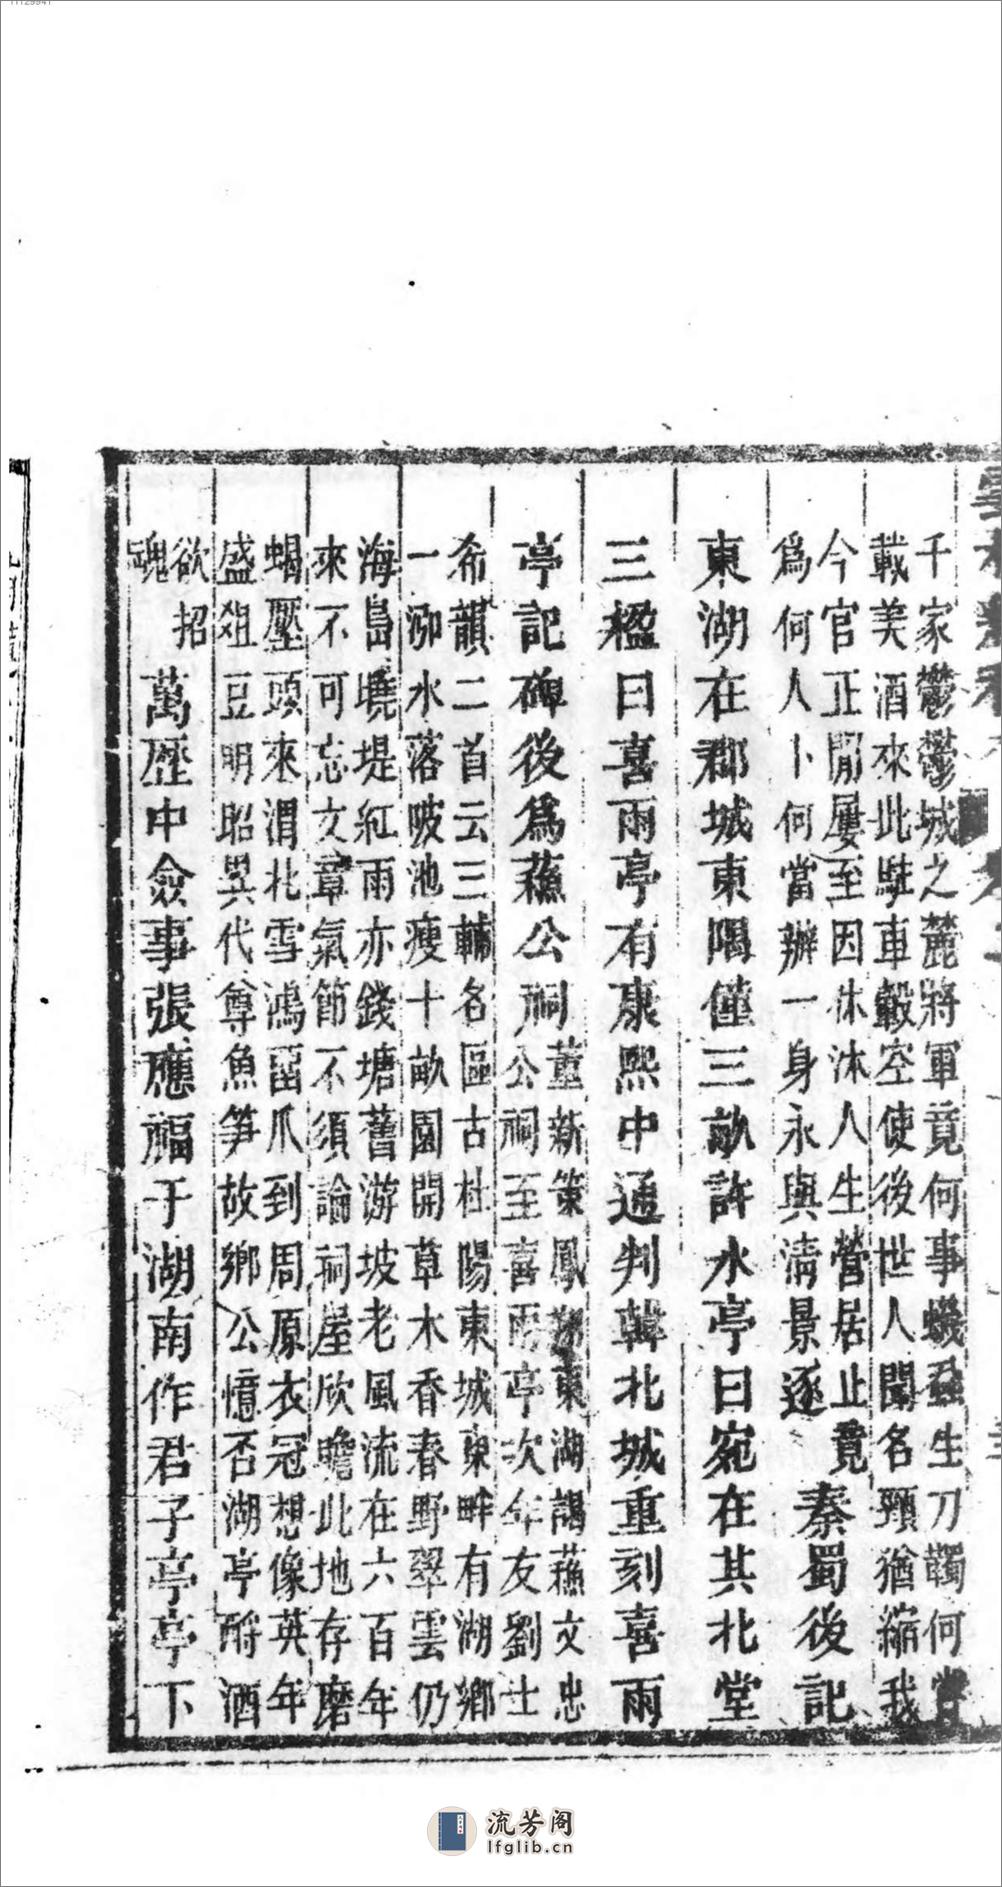 千家鬱鬱城之麓將軍竟何事蟣蝨生刀韣何嘗
載美酒來此駐車轂空使後世人聞名頸猶縮我
今官正閒屢至因休沐人生營居止竟
爲何人卜何當辦一身永與清景逐
秦蜀後記
東湖在郡城東隅僅三畝許水亭曰宛在其北堂
三楹曰喜雨亭有康熙中通判韓北城重刻喜雨
亭記碑後爲蘓公祠
董新策鳳翔東湖謁蘓文忠
公祠至喜雨亭次年友劉士
希韻二首云三輔名區古杜陽東城東畔有湖鄉
一泖水落陂池瘦十畝園開草木香春野翠雲仍
海島堯堤紅雨亦錢塘舊游坡老風流在六百年
來不可忘文章氣節不須論祠屋欣瞻此地存磨
蝎壓頭來渭北雪鴻畱爪到周原衣冠想像英年
盛俎豆明昭異代尊魚笋故鄉公憶否湖亭酹酒
欲招
魂
萬歷中僉事張應福于湖南作君子亭亭下
流芳阁
lfglib.cn